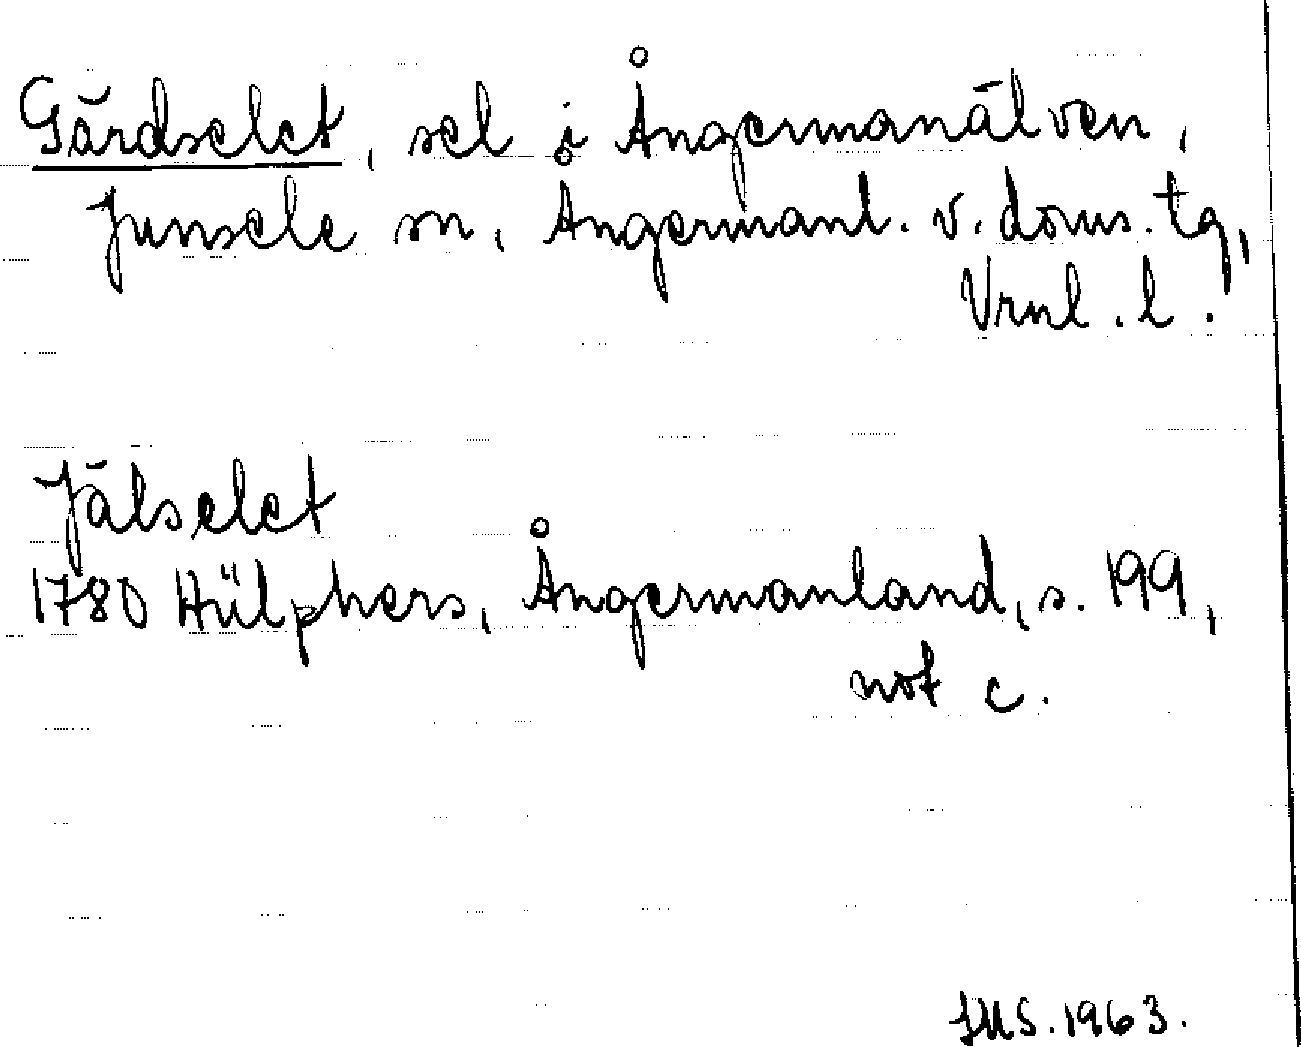 Gärdselet, sel i Ångermanälven,
Junsele sn, Ångermanl. v. doms. tg,
Vrnl. l.
Jälselet
1780 Hülphers, Ångermanland, s. 199,
not c.
JMS. 1963.